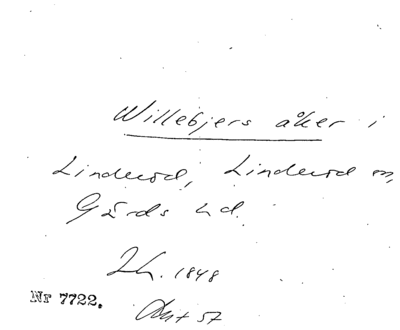 Willebjers åker i
Linderöd, Linderöd sn,
Gärds hd.
Jh. 1848
Nr 7722.
57